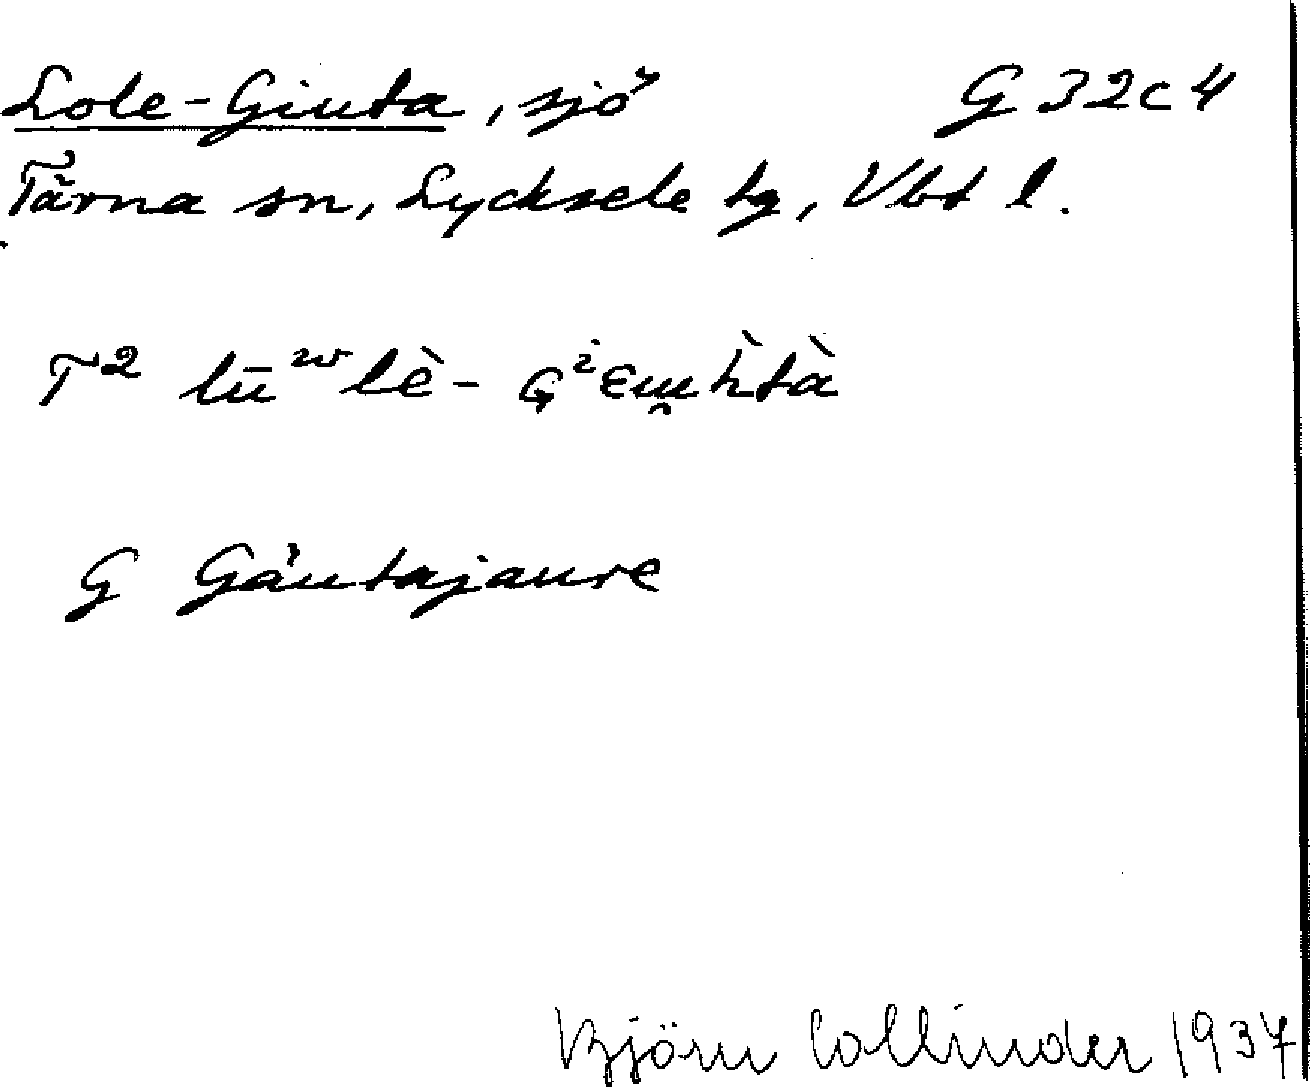 Lole-Giuta, sjö G 32c4
Tärna sn, Lycksele tg, Vbt l.
T² lūʷlè-
G Gäutajaure
Björn Collinder 1937